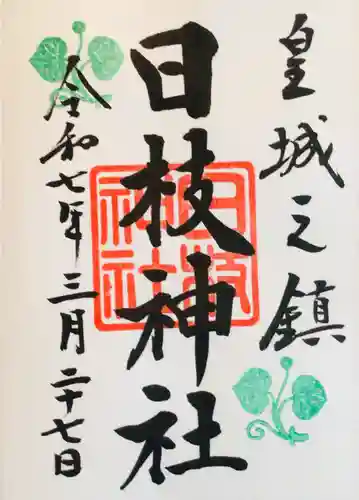 皇城之鎮
日枝神社
令和七年三月二十七日
日枝神社